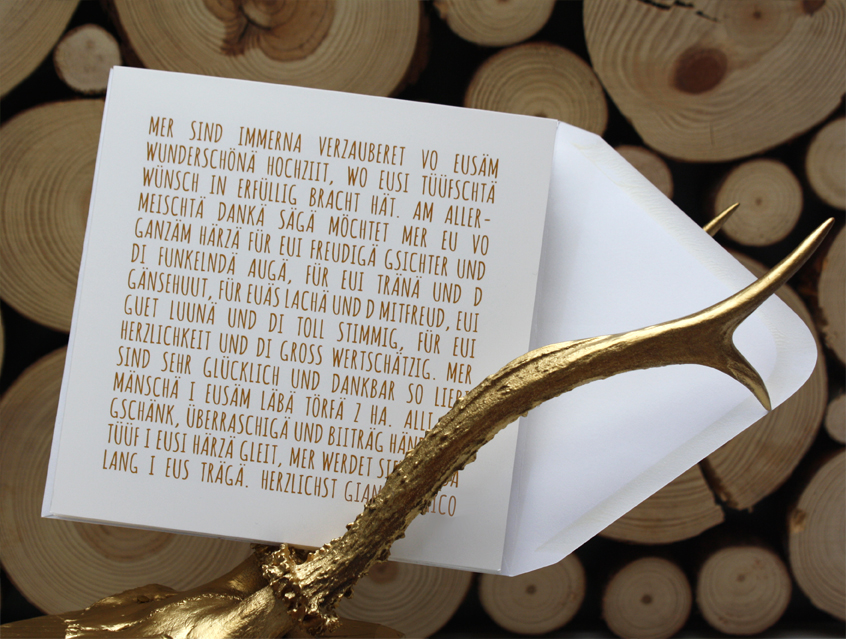 MER SIND IMMERNA VERZAUBERET VO EUSÄM
WUNDERSCHÖNÄ HOCHZIIT, WO EUSI TÜÜFSCHTÄ
WÜNSCH IN ERFÜLLIG BRACHT HÄT. AM ALLER-
MEISCHTÄ DANKÄ SÄGÄ MÖCHTET MER EU VO
GANZÄM HÄRZÄ FÜR EUI FREUDIGÄ GSICHTER UND
DI FUNKELNDÄ AUGÄ, FÜR EUI TRÄNÄ UND D
GÄNSEHUUT, FÜR EUÄS LACHÄ UND D MITFREUD, EUI
GUET LUUNÄ UND DI TOLL STIMMIG, FÜR EUI
HERZLICHKEIT UND DI GROSS WERTSCHÄTZIG. MER
SIND SEHR GLÜCKLICH UND DANKBAR SO LIEBI
MÄNSCHÄ I EUSÄM LÄBÄ TÖRFÄ Z HA. ALLI
GSCHÄNK, ÜBERRASCHIGÄ UND BIITRÄG HÄND
TÜÜF I EUSI HÄRZÄ GLEIT, MER WERDET SIE
LANG I EUS TRÄGÄ. HERZLICHST